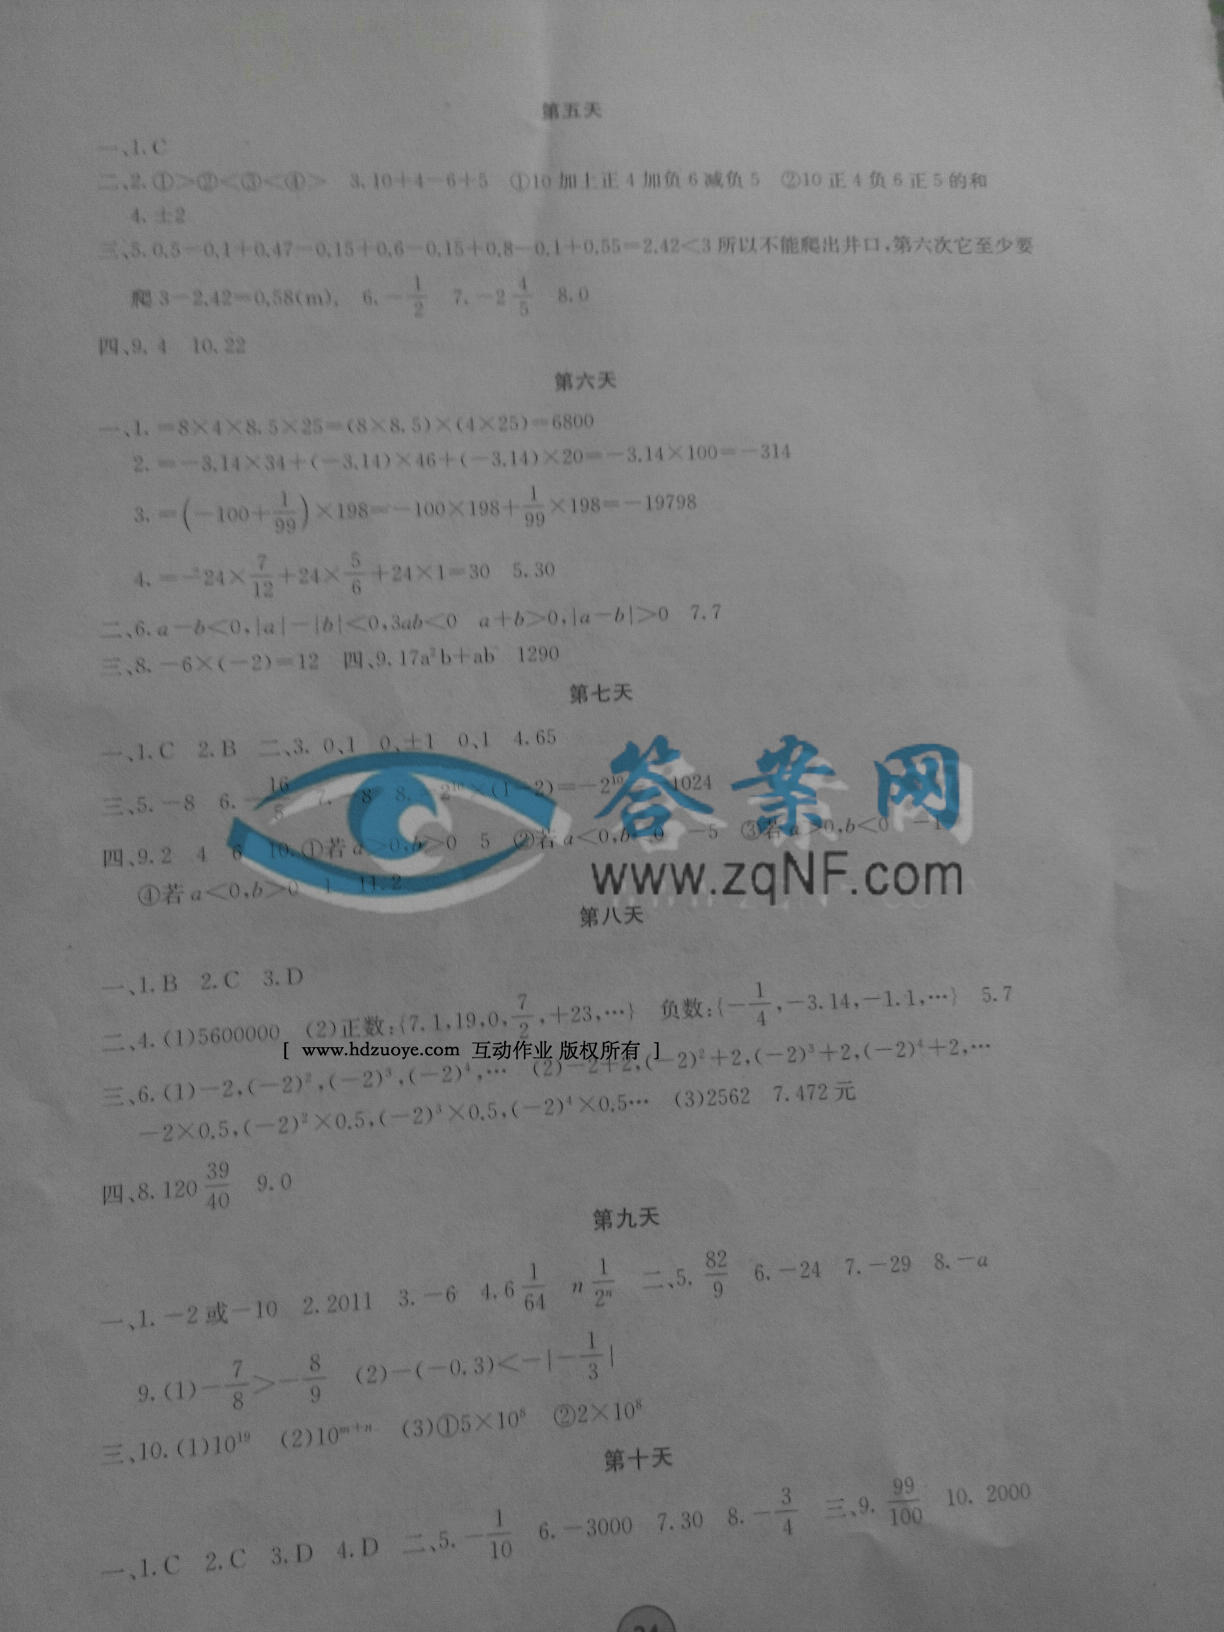 第五天
一、1. C
二、2. ①>②<③<④> 3. 10+4-6+5 ①10加上正4加负6减负5 ②10正4负6正5的和
4. ±2
三、5. 0.5-0.1+0.47-0.15+0.6-0.15+0.8-0.1+0.55=2.42<3所以不能爬出井口,第六次它至少要
爬3-2.42=0.58(m). 6. -1/2 7. -2 4/5 8. 0
四、9. 4 10. 22
第六天
一、1. =8×4×8.5×25=(8×8.5)×(4×25)=6800
2. =-3.14×34+(-3.14)×46+(-3.14)×20=-3.14×100=-314
3. =(-100+1/99)×198=-100×198+1/99×198=-19798
4. =-24×7/12+24×5/6+24×1=30 5. 30
二、6. a-b<0,|a|-|b|<0,3ab<0 a+b>0,|a-b|>0 7. 7
三、8. -6×(-2)=12 四、9. 17a²b+ab 1290
第七天
一、1. C 2. B 二、3. 0、1 0、±1 0、1 4. 65
三、5. -8 6. -16/5 7. 8 8. -2¹⁰×(1-2)=-2¹⁰ 1024
四、9. 2 4 6 10. ①若a>0,b>0 5 ②若a<0,b 0 -5 ③若a>0,b<0 -1
④若a<0,b>0 1 11. 2
答案网
www.zqNF.com
第八天
一、1. B 2. C 3. D
二、4. (1)5600000 (2)正数:{7.1,19,0,7/2,+23,…} 负数:{-1/4,-3.14,-1.1,…} 5. 7
[ www.hdzuoye.com 互动作业 版权所有 ]
三、6. (1)-2,(-2)²,(-2)³,(-2)⁴,… (2)-2+2,(-2)²+2,(-2)³+2,(-2)⁴+2,…
-2×0.5,(-2)²×0.5,(-2)³×0.5,(-2)⁴×0.5… (3)2562 7. 472元
四、8. 120 39/40 9. 0
第九天
一、1. -2或-10 2. 2011 3. -6 4. 6 1/64 n 1/2ⁿ 二、5. 82/9 6. -24 7. -29 8. -a
9. (1)-7/8>-8/9 (2)-(-0.3)<-|-1/3|
三、10. (1)10¹⁹ (2)10ᵐ⁺ⁿ (3)①5×10⁸ ②2×10⁸
第十天
一、1. C 2. C 3. D 4. D 二、5. -1/10 6. -3000 7. 30 8. -3/4 三、9. 99/100 10. 2000